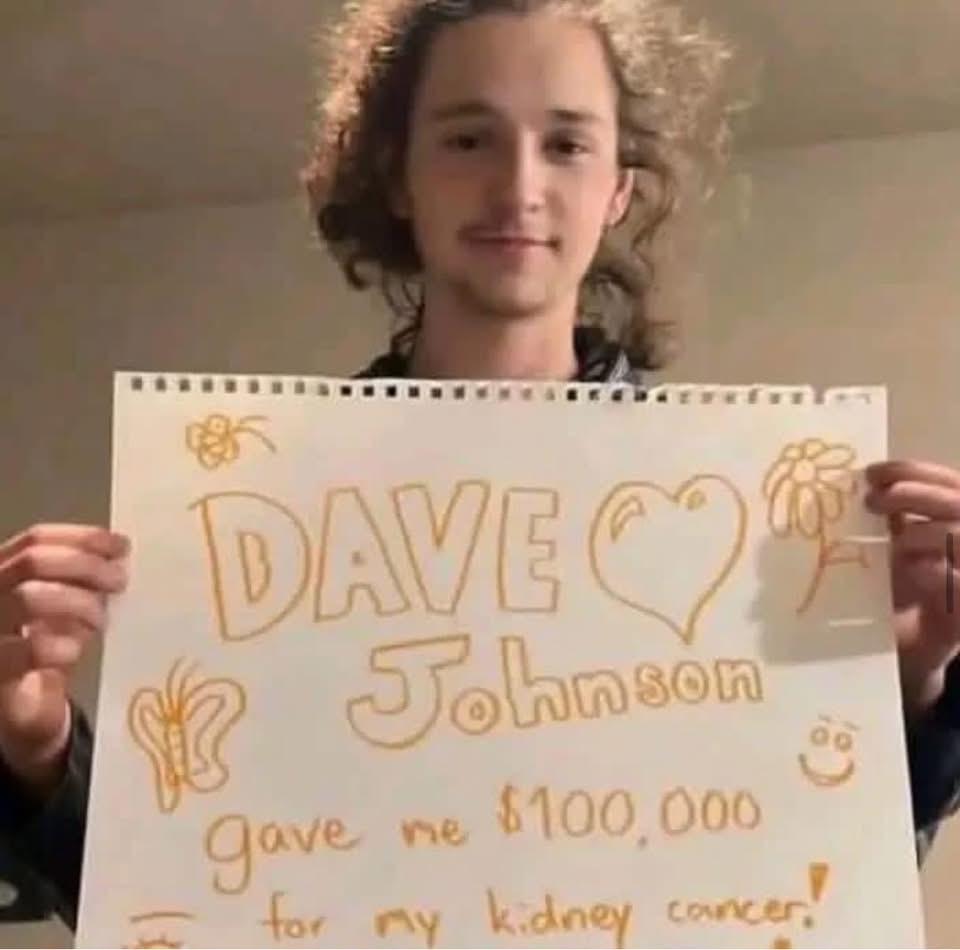 DAVE
Johnson
gave me $100,000
for my kidney cancer!